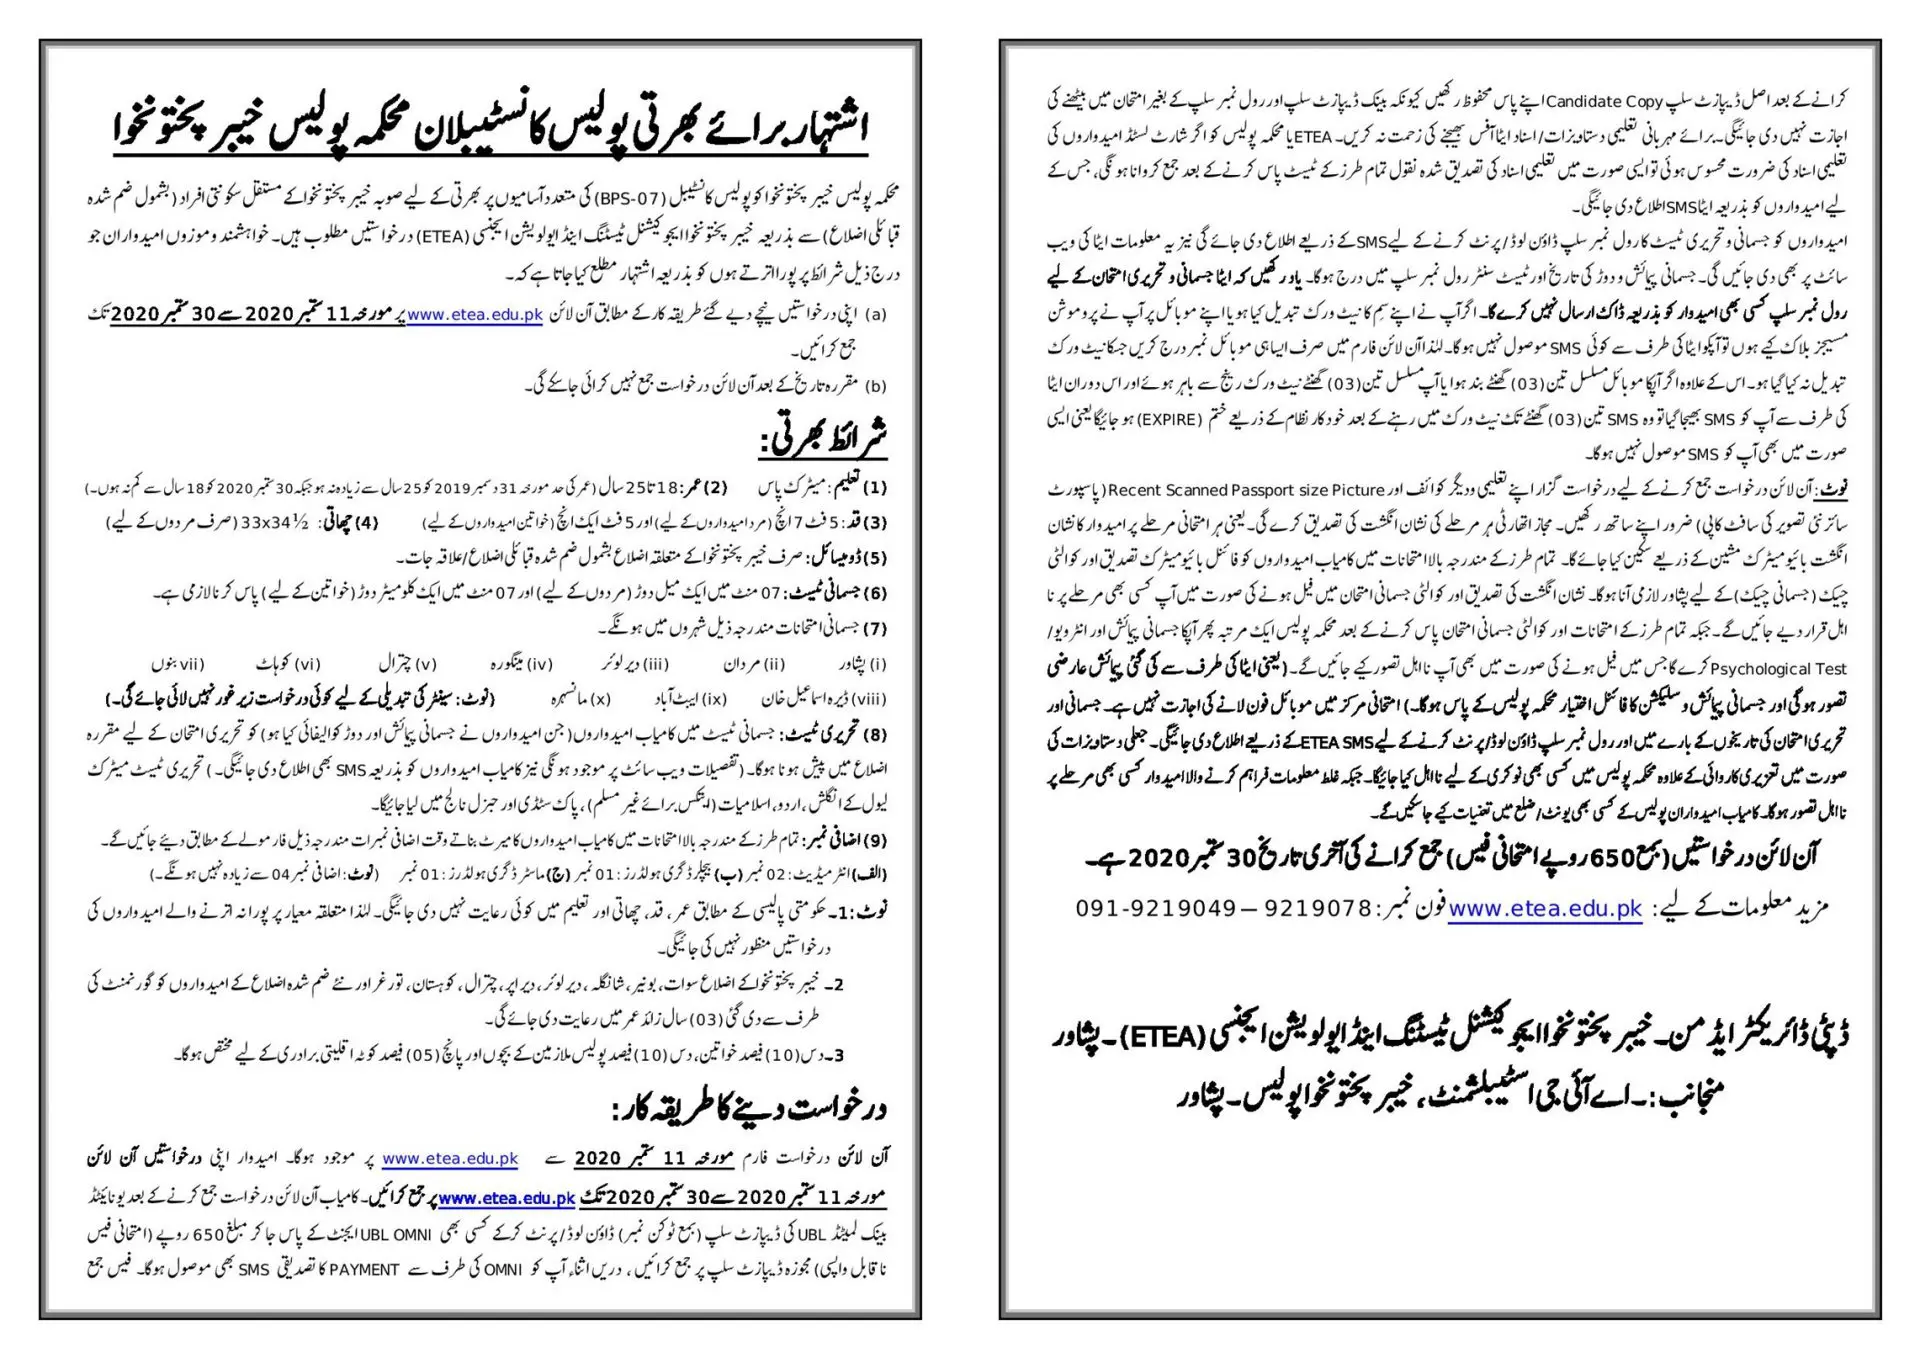 اشتہار برائے بھرتی پولیس کانسٹیبلان محکمہ پولیس خیبر پختونخوا
محکمہ پولیس خیبر پختونخوا کو پولیس کانسٹیبل (BPS-07) کی متعدد آسامیوں پر بھرتی کے لیے صوبہ خیبر پختونخوا کے مستقل سکونتی افراد (بشمول ضم شدہ
قبائلی اضلاع) سے بذریعہ خیبر پختونخوا ایجوکیشنل ٹیسٹنگ اینڈ ایولویشن ایجنسی (ETEA) درخواستیں مطلوب ہیں۔ خواہشمند و موزوں امیدواران جو
درج ذیل شرائط پر پورا اترتے ہوں کو بذریعہ اشتہار مطلع کیا جاتا ہے کہ۔
(a) اپنی درخواستیں نیچے دیے گئے طریقہ کار کے مطابق آن لائن www.etea.edu.pk پر مورخہ 11 ستمبر 2020 سے 30 ستمبر 2020 تک
جمع کرائیں۔
(b) مقررہ تاریخ کے بعد آن لائن درخواست جمع نہیں کرائی جاسکے گی۔
شرائط بھرتی:
(1) تعلیم: میٹرک پاس (2) عمر: 18 تا 25 سال (عمر کی حد مورخہ 31 دسمبر 2019 کو 25 سال سے زیادہ نہ ہو جبکہ 30 ستمبر 2020 کو 18 سال سے کم نہ ہوں۔)
(3) قد: 5 فٹ 7 انچ (مرد امیدواروں کے لیے) اور 5 فٹ ایک انچ (خواتین امیدواروں کے لیے) (4) چھاتی: 33x34½ (صرف مردوں کے لیے)
(5) ڈومیسائل: صرف خیبر پختونخوا کے متعلقہ اضلاع بشمول ضم شدہ قبائلی اضلاع/علاقہ جات۔
(6) جسمانی ٹیسٹ: 07 منٹ میں ایک میل دوڑ (مردوں کے لیے) اور 07 منٹ میں ایک کلومیٹر دوڑ (خواتین کے لیے) پاس کرنا لازمی ہے۔
(7) جسمانی امتحانات مندرجہ ذیل شہروں میں ہونگے۔
(i) پشاور (ii) مردان (iii) دیر لوئر (iv) مینگورہ (v) چترال (vi) کوہاٹ (vii بنوں
(viii) ڈیرہ اسماعیل خان (ix) ایبٹ آباد (x) مانسہرہ (نوٹ: سینٹر کی تبدیلی کے لیے کوئی درخواست زیر غور نہیں لائی جائے گی۔)
(8) تحریری ٹیسٹ: جسمانی ٹیسٹ میں کامیاب امیدواروں (جن امیدواروں نے جسمانی پیمائش اور دوڑ کوالیفائی کیا ہو) کو تحریری امتحان کے لیے مقررہ
اضلاع میں پیش ہونا ہوگا۔ (تفصیلات ویب سائٹ پر موجود ہونگی نیز کامیاب امیدواروں کو بذریعہ SMS بھی اطلاع دی جائیگی۔) تحریری ٹیسٹ میٹرک
لیول کے انگلش، اردو، اسلامیات (ایتھکس برائے غیر مسلم)، پاک سٹڈی اور جنرل نالج میں لیا جائیگا۔
(9) اضافی نمبر: تمام طرز کے مندرجہ بالا امتحانات میں کامیاب امیدواروں کا میرٹ بناتے وقت اضافی نمبرات مندرجہ ذیل فارمولے کے مطابق دیئے جائیں گے۔
(الف) انٹرمیڈیٹ: 02 نمبر (ب) بیچلر ڈگری ہولڈرز: 01 نمبر (ج) ماسٹر ڈگری ہولڈرز: 01 نمبر (نوٹ: اضافی نمبر 04 سے زیادہ نہیں ہونگے۔)
نوٹ: 1۔ حکومتی پالیسی کے مطابق عمر، قد، چھاتی اور تعلیم میں کوئی رعایت نہیں دی جائیگی۔ لہٰذا متعلقہ معیار پر پورا نہ اترنے والے امیدواروں کی
درخواستیں منظور نہیں کی جائیگی۔
2۔ خیبر پختونخوا کے اضلاع سوات، بونیر، شانگلہ، دیر لوئر، دیر اپر، چترال، کوہستان، تورغر اور نئے ضم شدہ اضلاع کے امیدواروں کو گورنمنٹ کی
طرف سے دی گئی (03) سال زائد عمر میں رعایت دی جائے گی۔
3۔ دس (10) فیصد خواتین، دس (10) فیصد پولیس ملازمین کے بچوں اور پانچ (05) فیصد کوٹہ اقلیتی برادری کے لیے مختص ہوگا۔
درخواست دینے کا طریقہ کار:
آن لائن درخواست فارم مورخہ 11 ستمبر 2020 سے www.etea.edu.pk پر موجود ہوگا۔ امیدوار اپنی درخواستیں آن لائن
مورخہ 11 ستمبر 2020 سے 30 ستمبر 2020 تک www.etea.edu.pk پر جمع کرائیں۔ کامیاب آن لائن درخواست جمع کرنے کے بعد یونائیٹڈ
بینک لمیٹڈ UBL کی ڈیپازٹ سلپ (بمع ٹوکن نمبر) ڈاؤن لوڈ/پرنٹ کرکے کسی بھی UBL OMNI ایجنٹ کے پاس جا کر مبلغ 650 روپے (امتحانی فیس
ناقابل واپسی) مجوزہ ڈیپازٹ سلپ پر جمع کرائیں، دریں اثناء آپ کو OMNI کی طرف سے PAYMENT کا تصدیقی SMS بھی موصول ہوگا۔ فیس جمع
کرانے کے بعد اصل ڈیپازٹ سلپ Candidate Copy اپنے پاس محفوظ رکھیں کیونکہ بینک ڈیپازٹ سلپ اور رول نمبر سلپ کے بغیر امتحان میں بیٹھنے کی
اجازت نہیں دی جائیگی۔ برائے مہربانی تعلیمی دستاویزات/اسناد ایٹا آفس بھیجنے کی زحمت نہ کریں۔ ETEA یا محکمہ پولیس کو اگر شارٹ لسٹڈ امیدواروں کی
تعلیمی اسناد کی ضرورت محسوس ہوئی تو ایسی صورت میں تعلیمی اسناد کی تصدیق شدہ نقول تمام طرز کے ٹیسٹ پاس کرنے کے بعد جمع کروانا ہونگی، جس کے
لیے امیدواروں کو بذریعہ ایٹا SMS اطلاع دی جائیگی۔
امیدواروں کو جسمانی و تحریری ٹیسٹ کا رول نمبر سلپ ڈاؤن لوڈ/پرنٹ کرنے کے لیے SMS کے ذریعے اطلاع دی جائے گی نیز یہ معلومات ایٹا کی ویب
سائٹ پر بھی دی جائیں گی۔ جسمانی پیمائش و دوڑ کی تاریخ اور ٹیسٹ سنٹر رول نمبر سلپ میں درج ہوگا۔ یاد رکھیں کہ ایٹا جسمانی و تحریری امتحان کے لیے
رول نمبر سلپ کسی بھی امیدوار کو بذریعہ ڈاک ارسال نہیں کرے گا۔ اگر آپ نے اپنے سم کا نیٹ ورک تبدیل کیا ہو یا اپنے موبائل پر آپ نے پروموشن
مسیجز بلاک کیے ہوں تو آپکو ایٹا کی طرف سے کوئی SMS موصول نہیں ہوگا۔ لہٰذا آن لائن فارم میں صرف ایسا ہی موبائل نمبر درج کریں جسکا نیٹ ورک
تبدیل نہ کیا گیا ہو۔ اس کے علاوہ اگر آپکا موبائل مسلسل تین (03) گھنٹے بند ہوا یا آپ مسلسل تین (03) گھنٹے نیٹ ورک رینج سے باہر ہوئے اور اس دوران ایٹا
کی طرف سے آپ کو SMS بھیجا گیا تو وہ SMS تین (03) گھنٹے تک نیٹ ورک میں رہنے کے بعد خودکار نظام کے ذریعے ختم (EXPIRE) ہو جائیگا یعنی ایسی
صورت میں بھی آپ کو SMS موصول نہیں ہوگا۔
نوٹ: آن لائن درخواست جمع کرنے کے لیے درخواست گزار اپنے تعلیمی و دیگر کوائف اور Recent Scanned Passport size Picture (پاسپورٹ
سائز نئی تصویر کی سافٹ کاپی) ضرور اپنے ساتھ رکھیں۔ مجاز اتھارٹی ہر مرحلے کی نشان انگشت کی تصدیق کرے گی۔ یعنی ہر امتحانی مرحلے پر امیدوار کا نشان
انگشت بائیومیٹرک مشین کے ذریعے سکین کیا جائے گا۔ تمام طرز کے مندرجہ بالا امتحانات میں کامیاب امیدواروں کو فائنل بائیومیٹرک تصدیق اور کوالٹی
چیک (جسمانی چیک) کے لیے پشاور لازمی آنا ہوگا۔ نشان انگشت کی تصدیق اور کوالٹی جسمانی امتحان میں فیل ہونے کی صورت میں آپ کسی بھی مرحلے پر نا
اہل قرار دیے جائیں گے۔ جبکہ تمام طرز کے امتحانات اور کوالٹی جسمانی امتحان پاس کرنے کے بعد محکمہ پولیس ایک مرتبہ پھر آپکا جسمانی پیمائش اور انٹرویو/
Psychological Test کرے گا جس میں فیل ہونے کی صورت میں بھی آپ نااہل تصور کیے جائیں گے۔ (یعنی ایٹا کی طرف سے کی گئی پیمائش عارضی
تصور ہوگی اور جسمانی پیمائش و سلیکشن کا فائنل اختیار محکمہ پولیس کے پاس ہوگا۔) امتحانی مرکز میں موبائل فون لانے کی اجازت نہیں ہے۔ جسمانی اور
تحریری امتحان کی تاریخوں کے بارے میں اور رول نمبر سلپ ڈاؤن لوڈ/پرنٹ کرنے کے لیے ETEA SMS کے ذریعے اطلاع دی جائیگی۔ جعلی دستاویزات کی
صورت میں تعزیری کاروائی کے علاوہ محکمہ پولیس میں کسی بھی نوکری کے لیے نااہل کیا جائیگا۔ جبکہ غلط معلومات فراہم کرنے والا امیدوار کسی بھی مرحلے پر
نااہل تصور ہوگا۔ کامیاب امیدواران پولیس کے کسی بھی یونٹ/ضلع میں تعینات کیے جاسکیں گے۔
آن لائن درخواستیں (بمع 650 روپے امتحانی فیس) جمع کرانے کی آخری تاریخ 30 ستمبر 2020 ہے۔
مزید معلومات کے لیے: www.etea.edu.pk فون نمبر: 091-9219049 – 9219078
ڈپٹی ڈائریکٹر ایڈمن۔ خیبر پختونخوا ایجوکیشنل ٹیسٹنگ اینڈ ایولویشن ایجنسی (ETEA)۔ پشاور
منجانب:۔ اے آئی جی اسٹیبلشمنٹ، خیبر پختونخوا پولیس۔ پشاور